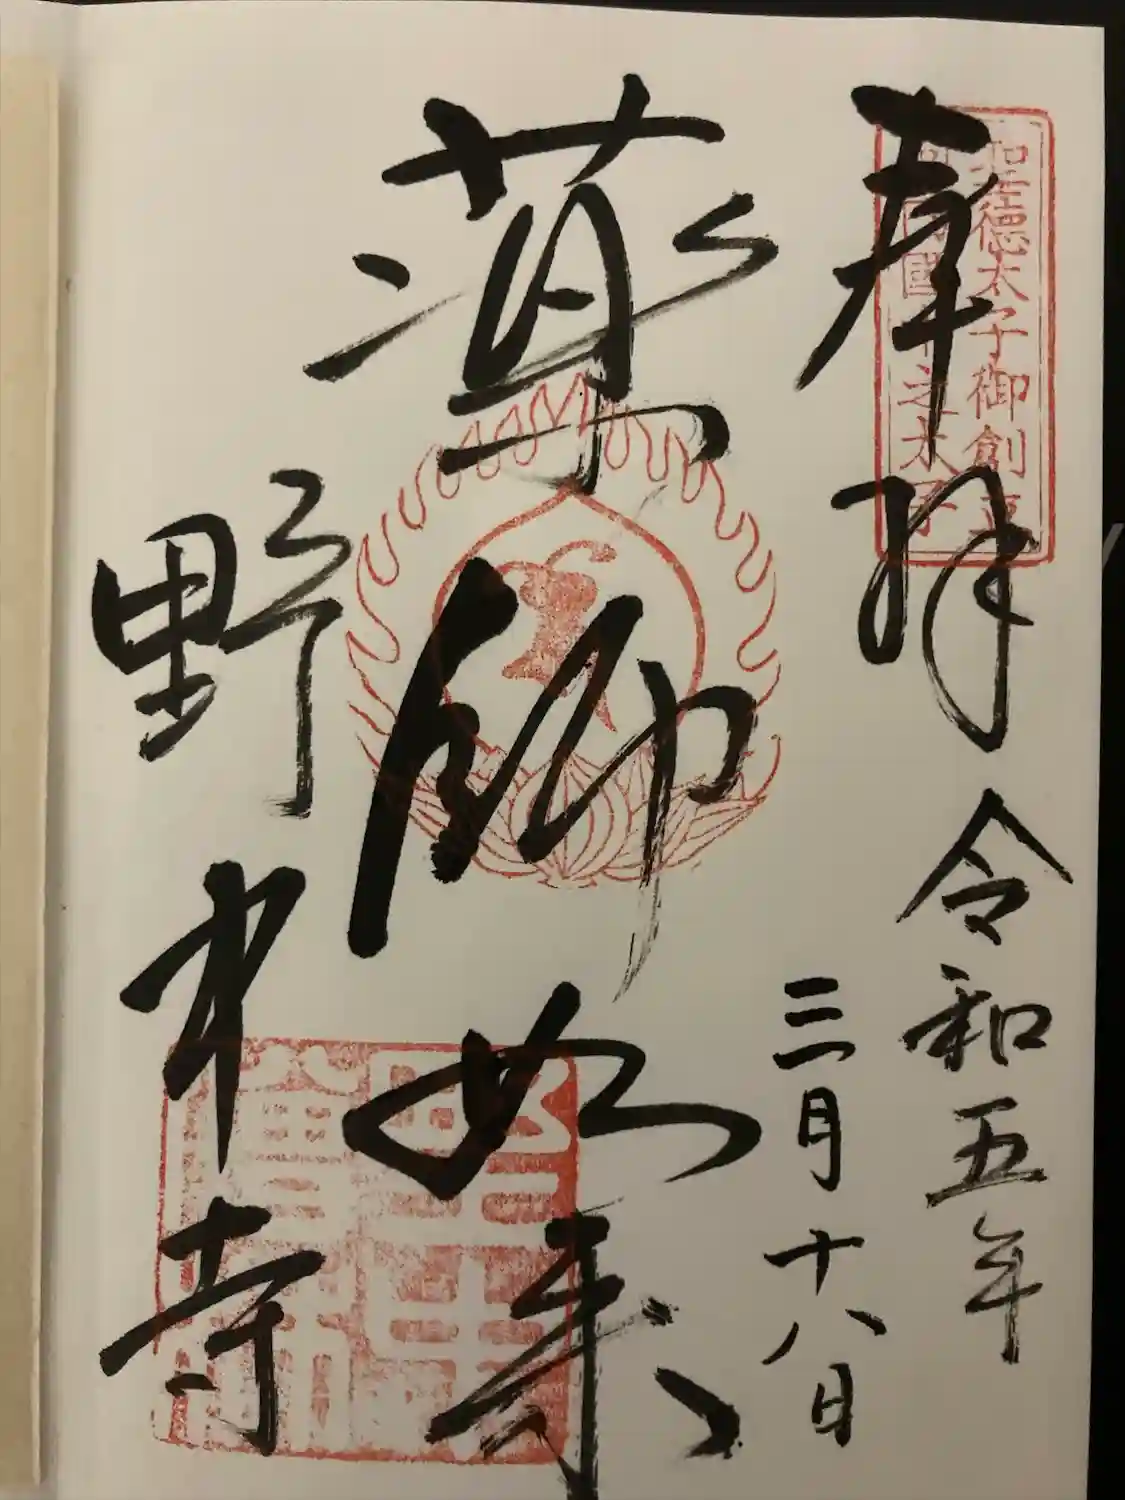 奉拝
聖徳太子御創
内國中之太子
令和五年
三月十八日
薬師如来
野中寺